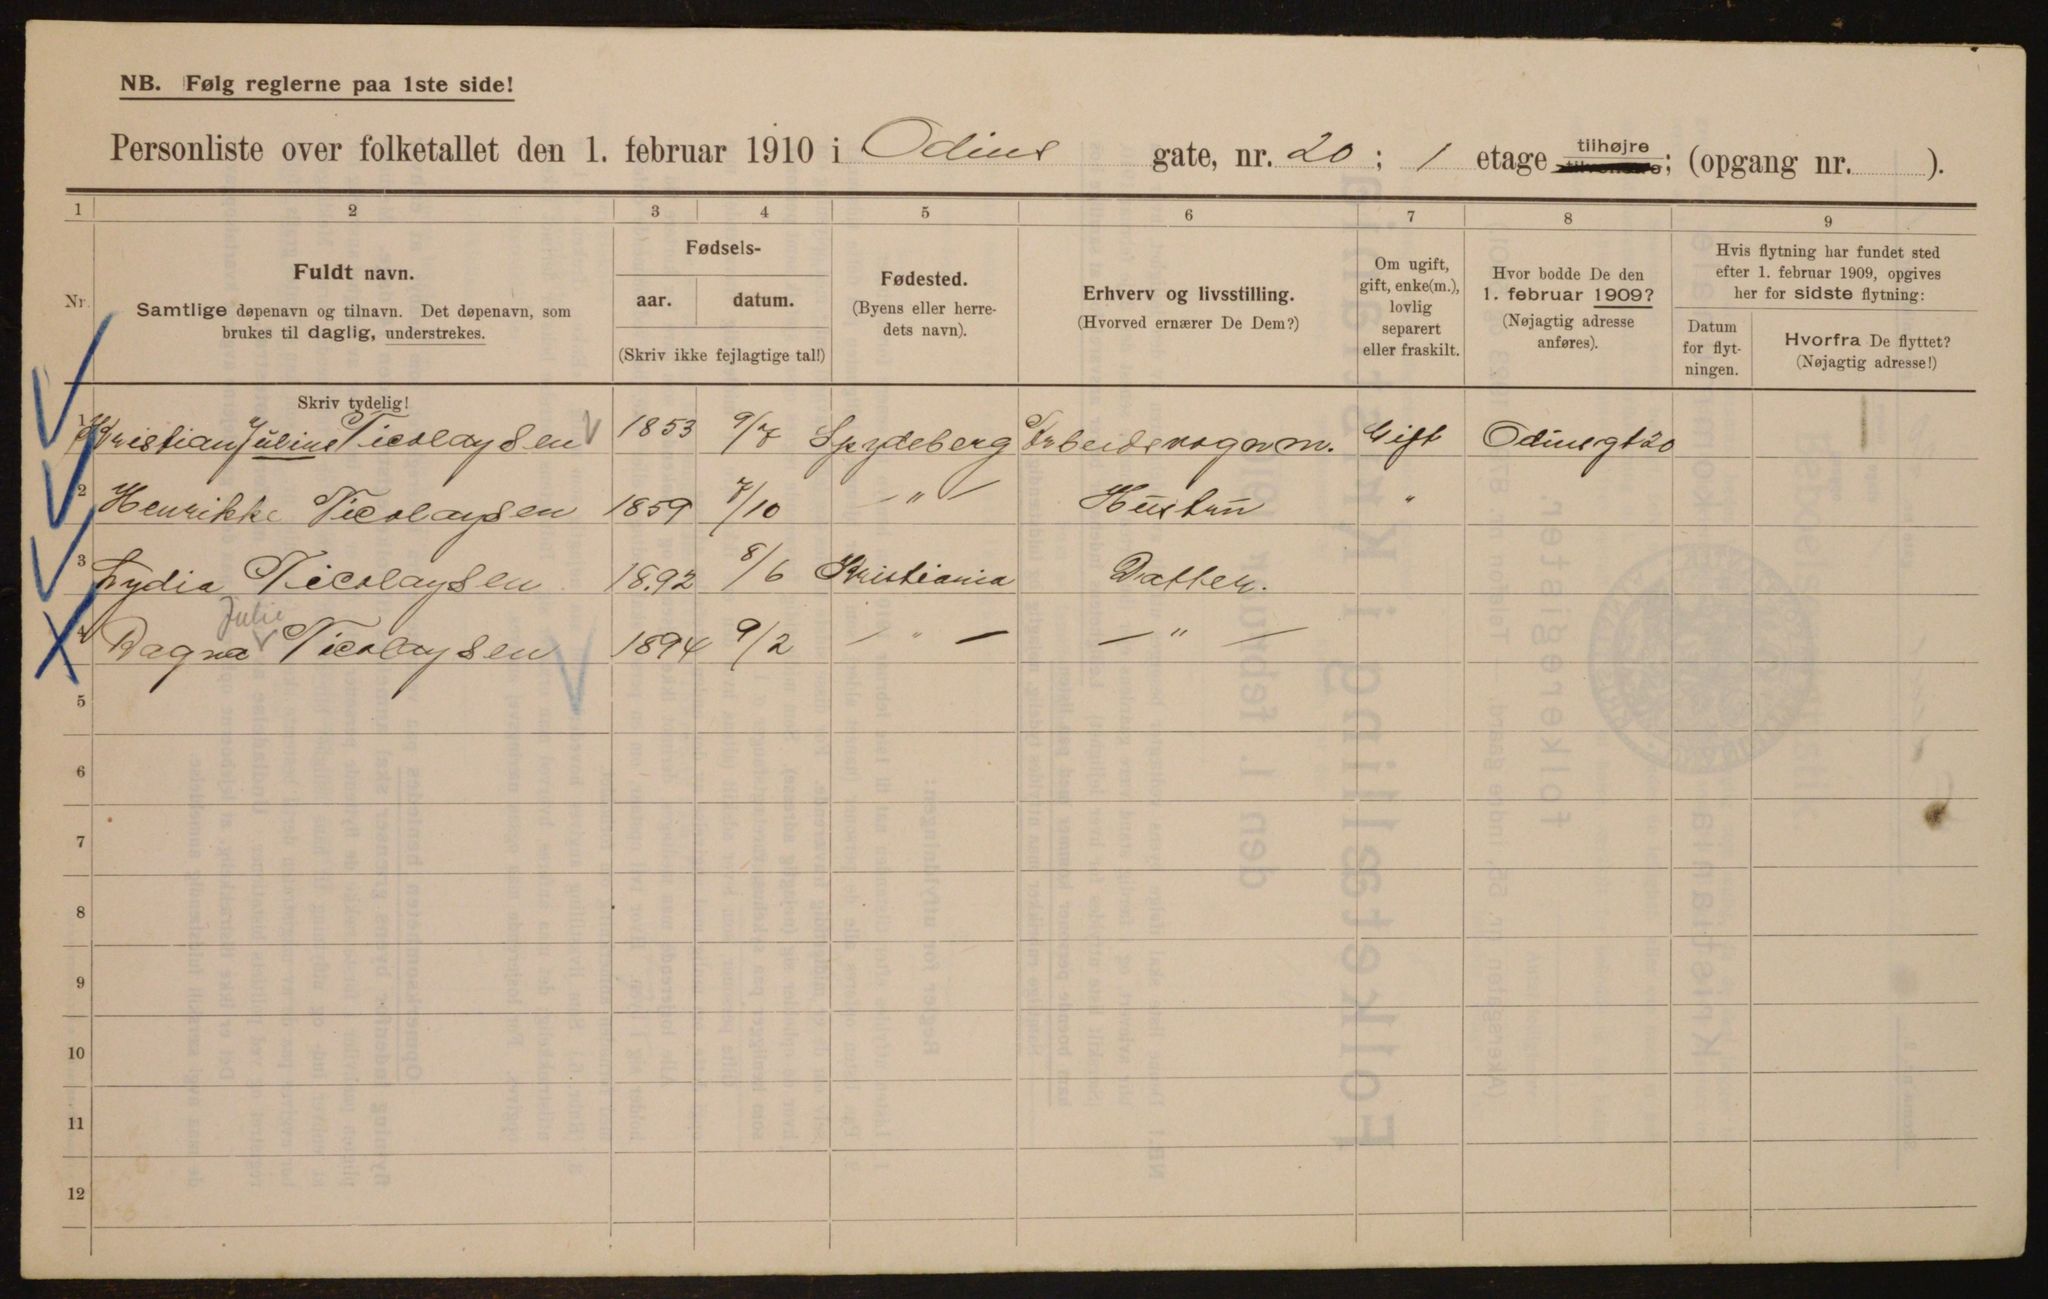 NB. Følg reglerne paa 1ste side!
Personliste over folketallet den 1. februar 1910 i Odins gate, nr. 20 ; 1 etage tilhøjre tilvenstre; (opgang nr. ).
1 2 3 4 5 6 7 8 9
Nr. Fuldt navn. Samtlige døpenavn og tilnavn. Det døpenavn, som
brukes til daglig, understrekes.
Fødsels-
aar. datum.
(Skriv ikke fejlagtige tal!)
Fødested.
(Byens eller herre-
dets navn).
Erhverv og livsstilling.
(Hvorved ernærer De Dem?)
Om ugift,
gift, enke(m.),
lovlig
separert
eller fraskilt.
Hvor bodde De den
1. februar 1909?
(Nøjagtig adresse
anføres).
Hvis flytning har fundet sted
efter 1. februar 1909, opgives
her for sidste flytning:
Datum
for flyt-
ningen.
Hvorfra De flyttet?
(Nøjagtig adresse!)
Skriv tydelig!
1 Kristian Julius Nicolaysen 1853 9/7 Spydeberg Arbeidsvognm. Gift Odinsgt 20
2 Henrikke Nicolaysen 1859 7/10 — " — Hustru "
3 Lydia Nicolaysen 1892 8/6 Kristiania Datter.
Julie
4 Dagna Nicolaysen 1894 9/2 — " — — " —
5
6
7
8
9
10
11
12